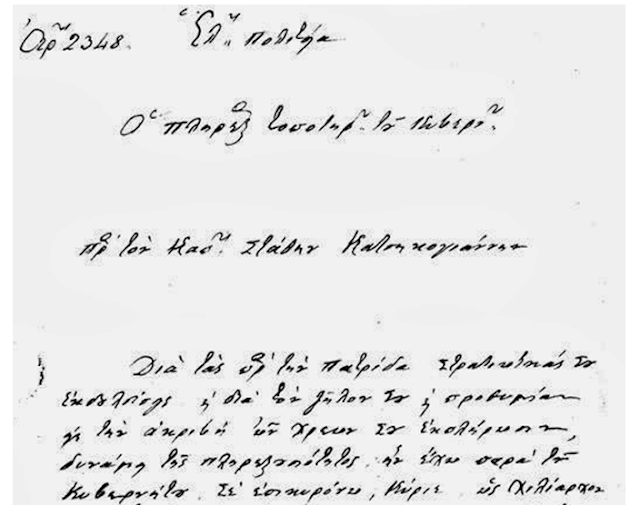 Ἀρ. 2348. Ἑλ. Πολιτεία
Ὁ πληρεξ τοποτηρ. τοῦ Κυβερν.
πρ τὸν Καπ. Στάθην Κατσηκογιάννην
Διὰ τὰς πρ τὴν Πατρίδα Στρατιωτικάς Σου
ἐκδουλεύσεις ἢ διὰ τὸν ζῆλον Σου ἢ προθυμίαν
τὴν ἀκριβῆ τῶν χρεων Σου ἐκπλήρωσιν,
δυνάμη τῆς πληρεξουσιότητος, ἣν ἔχω παρὰ τοῦ
Κυβερνήτου. Σὲ ἐπικυρόνω, Κύριε, ὡς Χιλίαρχον